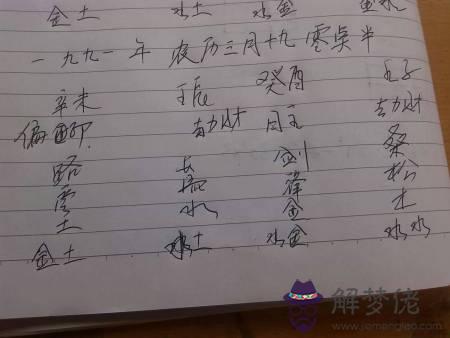 金土 水土 水金
一九九一年 农历三月十九 零点半
辛未 壬辰 癸酉 壬子
偏印 劫财 日主 劫财
路 长 剑 桑
流 锋 松
土 水 金 木
金土 水土 水金 水水
解梦佬
www.jiemengleo.com